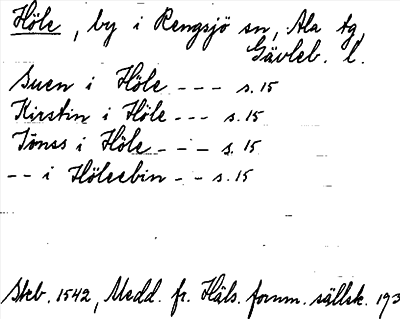 Höle, by i Rengsjö sn, Ala tg,
Gävleb. l.
Suen i Höle --- s. 15
Kirstin i Höle --- s. 15
Jönss i Höle --- s. 15
-- i Höleebin -- s. 15
Skb. 1542, Medd. fr. Häls. fornm. sällsk. 193